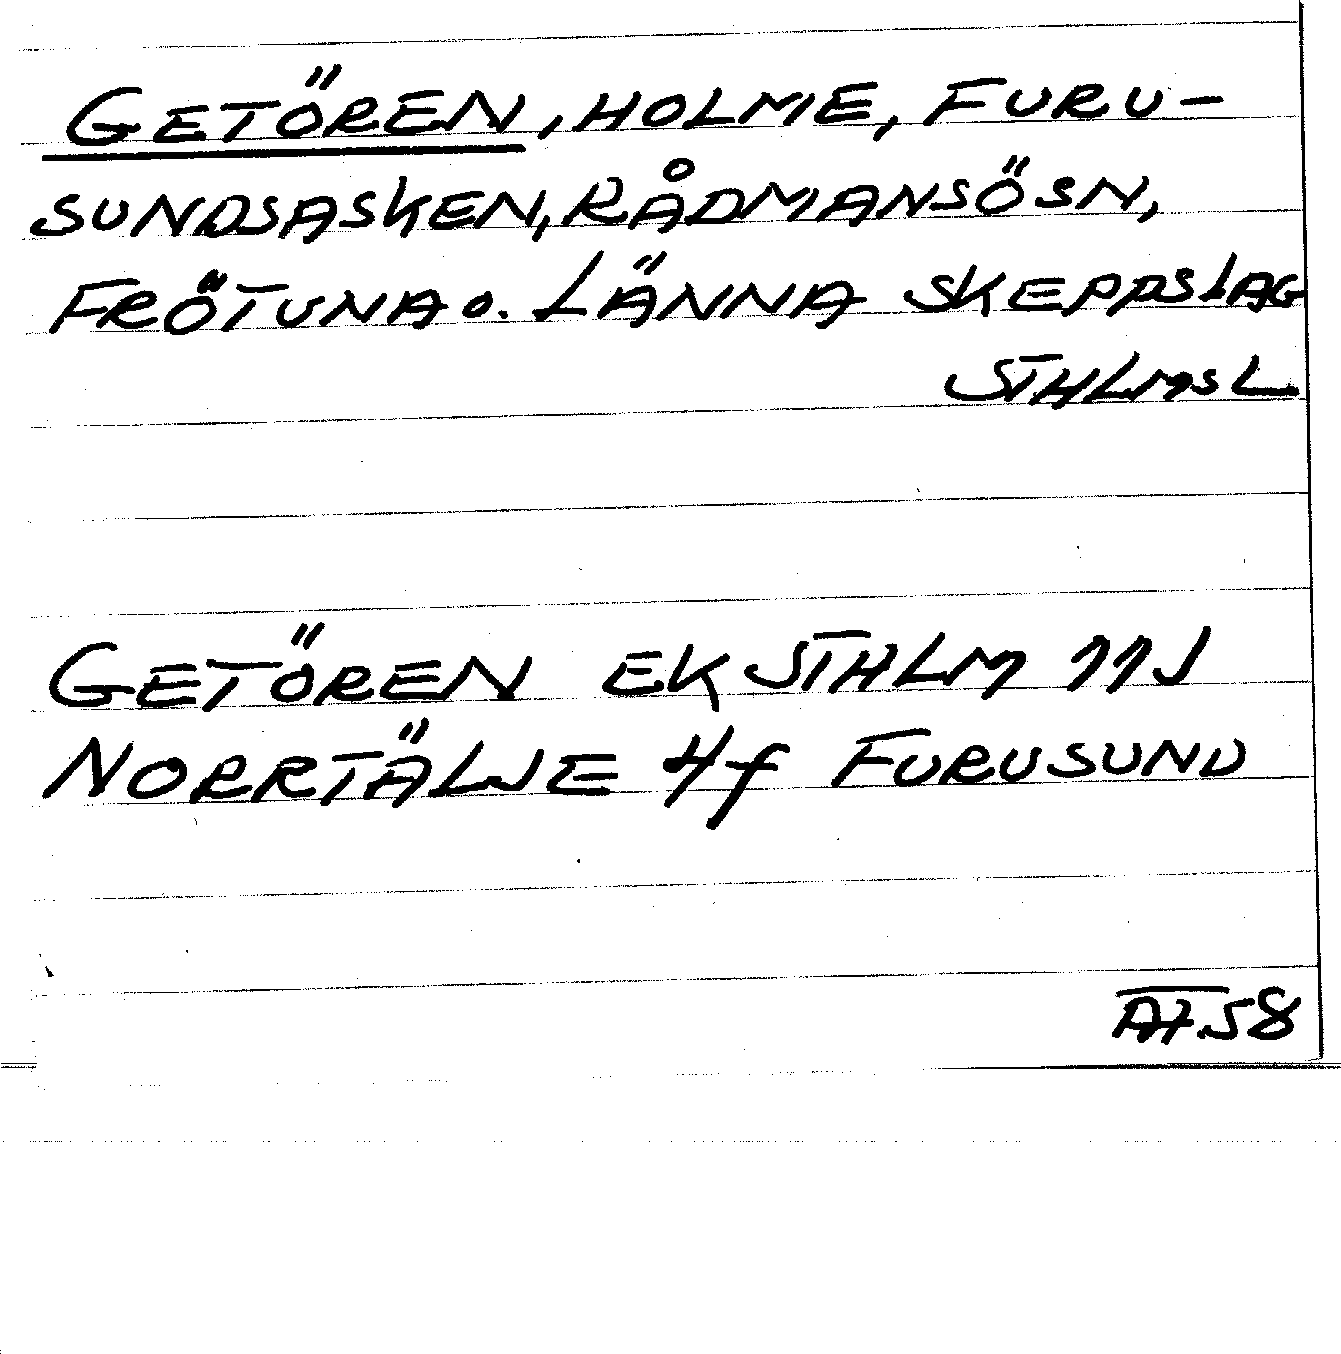 GETÖREN, HOLME, FURU-
SUNDSASKEN, RÅDMANSÖSN,
FRÖTUNA o. LÄNNA SKEPPSLAG
STHLMS L
GETÖREN EK STHLM 11J
NORRTÄLJE 4f FURUSUND
AF.58